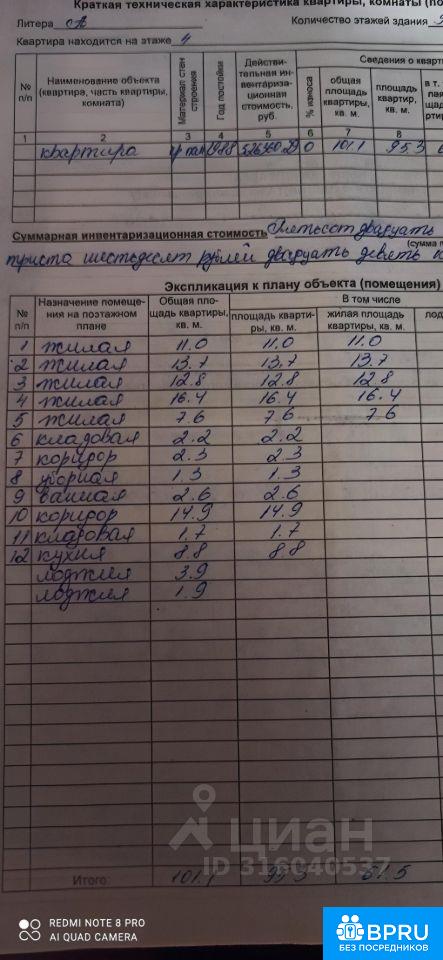 Краткая техническая характеристика квартиры, комнаты (по
Литера А Количество этажей здания
Квартира находится на этаже 4
№ п/п Наименование объекта (квартира, часть квартиры, комната) Материал стен строения Год постройки Действительная инвентаризационная стоимость, руб. % износа Сведения о кварт
общая площадь квартиры, кв. м. площадь квартир, кв. м. в т.
1 2 3 4 5 6 7 8
квартира 1988 0 101.1 95.3
Суммарная инвентаризационная стоимость Пятьсот двадцать
(сумма п
триста шестьдесят рублей двадцать девять к
Экспликация к плану объекта (помещения)
№ п/п Назначение помещения на поэтажном плане Общая площадь квартиры, кв. м. В том числе
площадь квартиры, кв. м. жилая площадь квартиры, кв. м. под
1 жилая 11.0 11.0 11.0
2 жилая 13.7 13.7 13.7
3 жилая 12.8 12.8 12.8
4 жилая 16.4 16.4 16.4
5 жилая 7.6 7.6 7.6
6 кладовая 2.2 2.2
7 коридор 2.3 2.3
8 уборная 1.3 1.3
9 ванная 2.6 2.6
10 коридор 14.9 14.9
11 кладовая 1.7 1.7
12 кухня 8.8 8.8
лоджия 3.9
лоджия 1.9
циан
ID 316040537
Итого: 101.1 95.3 61.5
REDMI NOTE 8 PRO
AI QUAD CAMERA
BPRU
БЕЗ ПОСРЕДНИКОВ